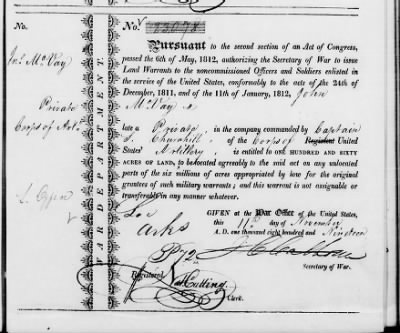 No.
No. 23078
Jno. McVay
Private
Corps of Art.
WAR DEPARTMENT
Pursuant to the second section of an Act of Congress,
passed the 6th of May, 1812, authorizing the Secretary of War to issue
Land Warrants to the noncommissioned Officers and Soldiers enlisted in the
service of the United States, conformably to the acts of the 24th of
December, 1811, and of the 11th of January, 1812, John
McVay
late a Private in the company commanded by Captain
Churchill of the Corps of Regiment United
States' Artillery is entitled to ONE HUNDRED AND SIXTY
ACRES OF LAND, to be located agreeably to the said act on any unlocated
parts of the six millions of acres appropriated by law for the original
grantees of such military warrants; and this warrant is not assignable or
transferable in any manner whatever.
GIVEN at the War Office of the United States,
this 11th day of November
A. D. one thousand eight hundred and Nineteen
J C Calhoun
Secretary of War.
Registered
Clerk.